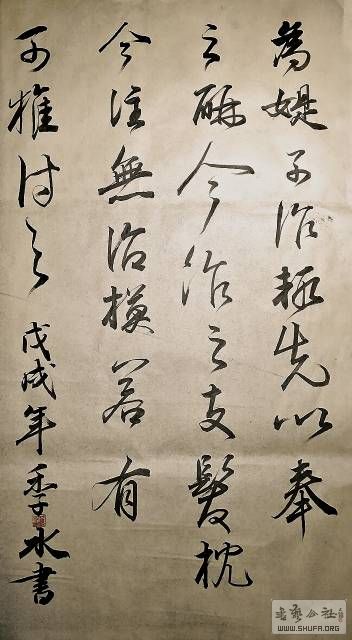 媞子治先以奉
之酥今治之支髮枕
今注無治模若有
可推付之 戊戌年季水書
書藝公社
WWW.SHUFA.ORG